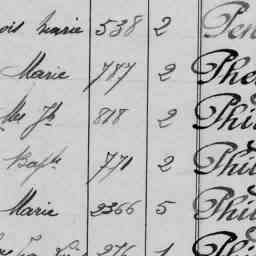 ois Marie 538 2 Pen
Marie 787 2 Phe
818 2 Phi
Bapte 771 2 Phil
Marie 2366 5 Phil
276 1 Phi